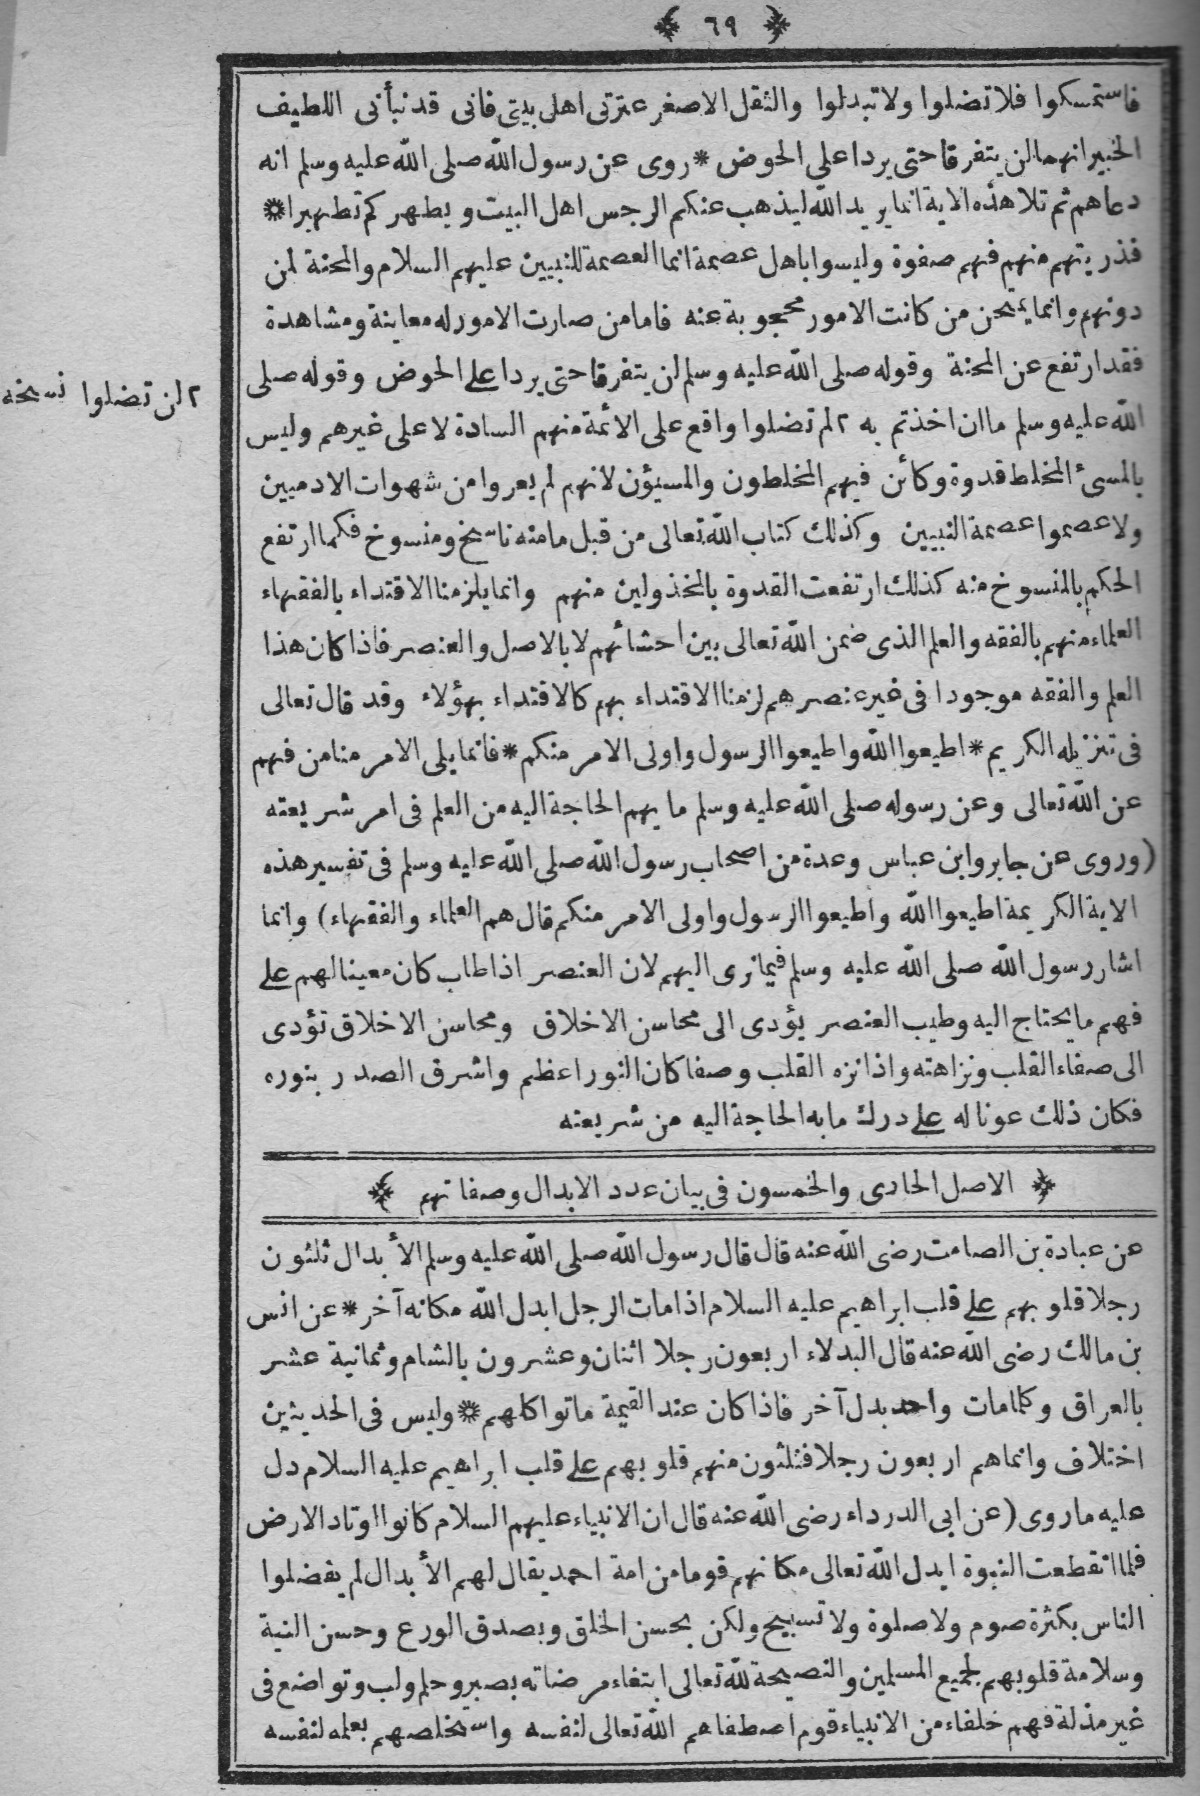 ٦٩
فاستمسكوا فلا تضلوا ولا تبدلوا والثقل الاصغر عترتى اهل بيتى فانى قد نبأنى اللطيف
الخبير انهما لن يتفرقا حتى يردا على الحوض * روى عن رسول الله صلى الله عليه وسلم انه
دعاهم ثم تلا هذه الاية انما يريد الله ليذهب عنكم الرجس اهل البيت ويطهركم تطهيرا *
فذريتهم منهم فهم صفوة وليسوا باهل عصمة انما العصمة للنبيين عليهم السلام والمحنة لمن
دونهم وانما يمتحن من كانت الامور محجوبة عنه فاما من صارت الامور له معاينة ومشاهدة
فقد ارتفع عن المحنة وقوله صلى الله عليه وسلم لن يتفرقا حتى يردا على الحوض وقوله صلى
الله عليه وسلم ما ان اخذتم به ٢ لم تضلوا واقع على الائمة منهم السادة لا على غيرهم وليس
٢ لن تضلوا نسخه
بالمسئ المخلط قدوة وكائن فيهم المخلطون والمسيؤن لانهم لم يعروا من شهوات الادميين
ولا عصموا عصمة النبيين وكذلك كتاب الله تعالى من قبل ما منه ناسخ ومنسوخ فكما ارتفع
الحكم بالمنسوخ منه كذلك ارتفعت القدوة بالمخذولين منهم وانما يلزمنا الاقتداء بالفقهاء
العلماء منهم بالفقه والعلم الذى ضمن الله تعالى بين احشائهم لا بالاصل والعنصر فاذا كان هذا
العلم والفقه موجودا فى غير عنصرهم لزمنا الاقتداء بهم كالاقتداء بهؤلاء وقد قال تعالى
فى تنزيله الكريم * اطيعوا الله واطيعوا الرسول واولى الامر منكم * فانما يلى الامر منا من فهم
عن الله تعالى وعن رسوله صلى الله عليه وسلم ما يهم الحاجة اليه من العلم فى امر شريعته
(وروى عن جابر وابن عباس وعدة من اصحاب رسول الله صلى الله عليه وسلم فى تفسير هذه
الاية الكريمة اطيعوا الله واطيعوا الرسول واولى الامر منكم قال هم العلماء والفقهاء) وانما
اشار رسول الله صلى الله عليه وسلم فيما نرى اليهم لان العنصر اذا طاب كان معينا لهم على
فهم ما يحتاج اليه وطيب العنصر يؤدى الى محاسن الاخلاق ومحاسن الاخلاق تؤدى
الى صفاء القلب ونزاهته واذا نزه القلب وصفا كان النور اعظم واشرق الصدر بنوره
فكان ذلك عونا له على درك ما به الحاجة اليه من شريعته
الاصل الحادى والخمسون فى بيان عدد الابدال وصفاتهم
عن عبادة بن الصامت رضى الله عنه قال قال رسول الله صلى الله عليه وسلم الأبدال ثلثون
رجلا قلوبهم على قلب ابراهيم عليه السلام اذا مات الرجل ابدل الله مكانه آخر * عن انس
بن مالك رضى الله عنه قال البدلاء اربعون رجلا اثنان وعشرون بالشام وثمانية عشر
بالعراق وكلما مات واحد بدل آخر فاذا كان عند القيمة ماتوا كلهم * وليس فى الحديثين
اختلاف وانما هم اربعون رجلا فثلثون منهم قلوبهم على قلب ابراهيم عليه السلام دل
عليه ما روى (عن ابى الدرداء رضى الله عنه قال ان الانبياء عليهم السلام كانوا اوتاد الارض
فلما انقطعت النبوة ابدل الله تعالى مكانهم قوما من امة احمد يقال لهم الأبدال لم يفضلوا
الناس بكثرة صوم ولا صلوة ولا تسبيح ولكن بحسن الخلق وبصدق الورع وحسن النية
وسلامة قلوبهم لجميع المسلمين والنصيحة لله تعالى ابتغاء مرضاته بصبر وحلم ولب وتواضع فى
غير مذلة فهم خلفاء من الانبياء قوم اصطفاهم الله تعالى لنفسه واستخلصهم بعلمه لنفسه